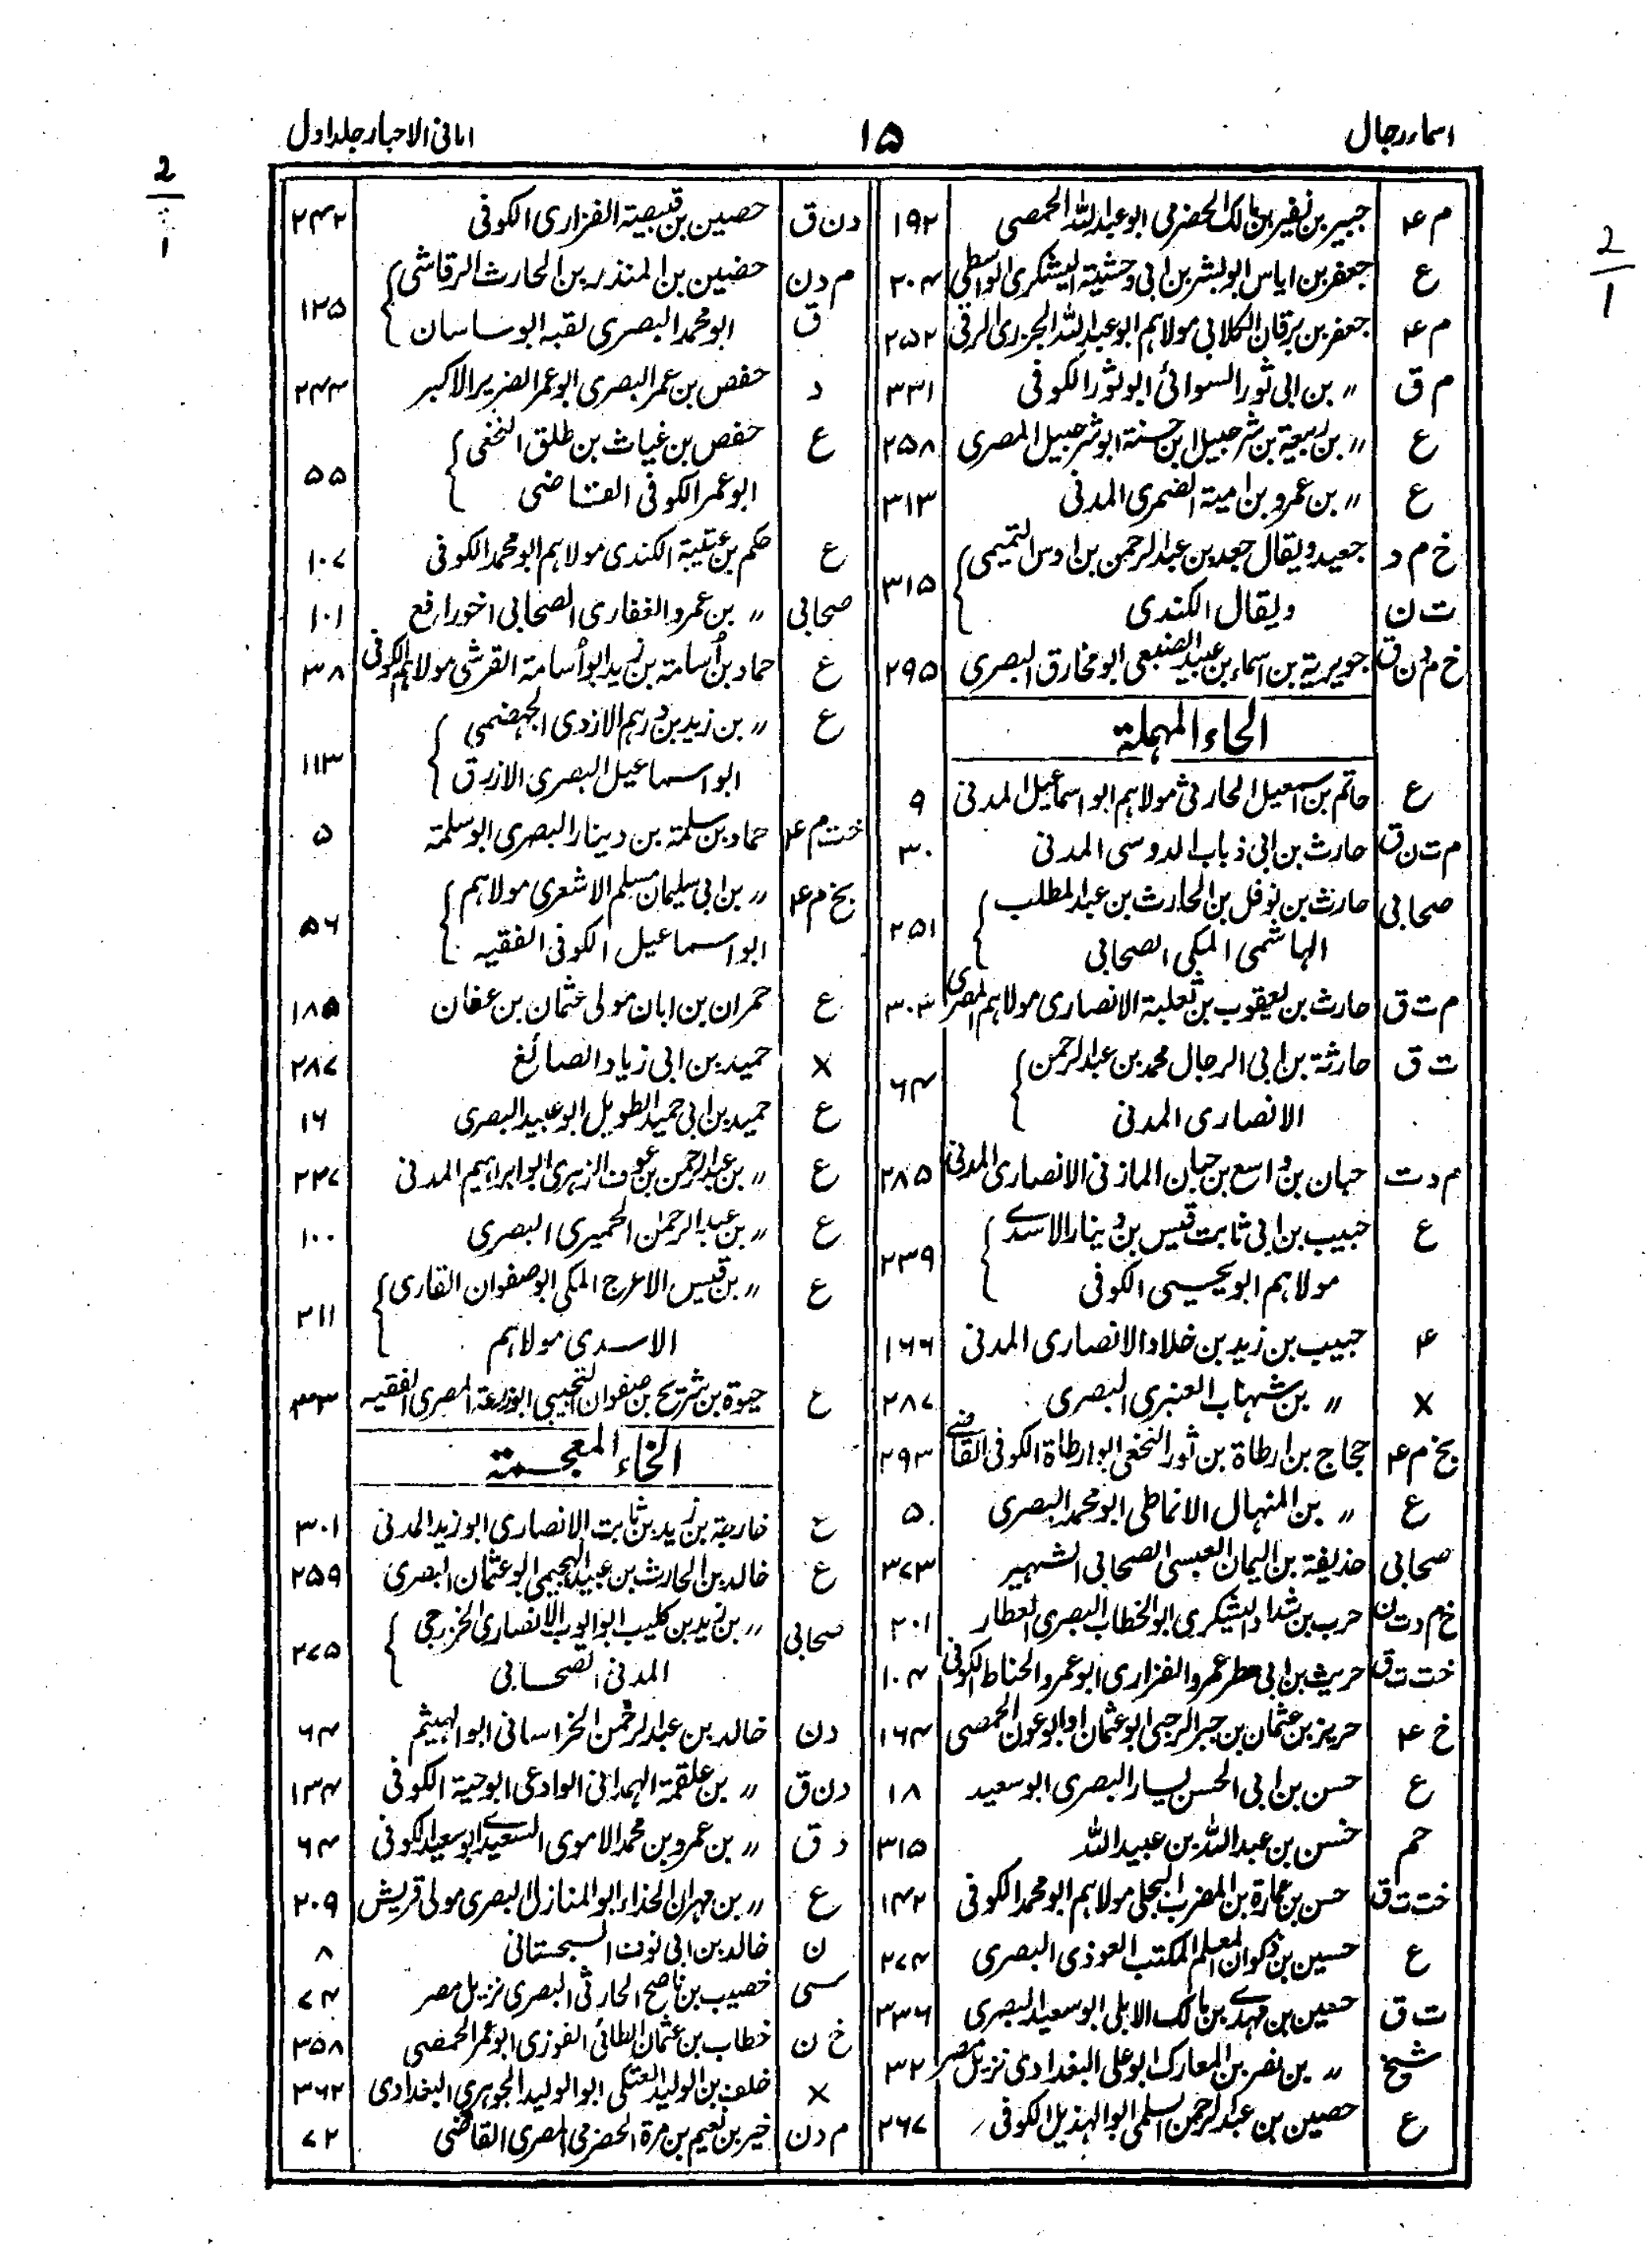 اسماء رجال
۱۵
امانی الاحبار جلد اول
2
1
2
1
م ۴ جبیر بن نفیر بن مالک الحضرمی ابو عبد اللہ الحمصی ۱۹۲
ع جعفر بن ایاس ابو بشر بن ابی وحشیۃ الیشکری الواسطی ۲۰۴
م ۴ جعفر بن برقان الکلابی مولاہم ابو عبد اللہ الجزری الرقی ۲۵۲
م ق 〃 بن ابی ثور السوائی ابو ثور الکوفی ۳۳۱
ع 〃 بن ربیعۃ بن شرحبیل ابن حسنۃ ابو شرحبیل المصری ۲۵۸
ع 〃 بن عمرو بن امیۃ الضمری المدنی ۳۱۳
خ م د جعید ویقال جعد بن عبد الرحمن بن اوس التمیمی
ت ن ویقال الکندی ۳۱۵
خ م د ن ق جویریۃ بن اسماء بن عبید الضبعی ابو مخارق البصری ۲۹۵
الحاء المهملة
ع حاتم بن اسمعیل الحارثی مولاہم ابو اسماعیل المدنی ۹
م ت ن ق حارث بن ابی ذباب الدوسی المدنی ۳۰
صحابی حارث بن نوفل بن الحارث بن عبد المطلب
الہاشمی المکی الصحابی ۲۵۱
م ت ق حارث بن یعقوب بن ثعلبۃ الانصاری مولاہم المصری ۳۰۳
ت ق حارثۃ بن ابی الرجال محمد بن عبد الرحمن
الانصاری المدنی ۶۴
م د ت حبان بن واسع بن حبان المازنی الانصاری المدنی ۲۸۵
ع حبیب بن ابی ثابت قیس بن دینار الاسدے
مولاہم ابو یحییٰ الکوفی ۲۳۹
۴ حبیب بن زید بن خلاد الانصاری المدنی ۱۶۶
x 〃 بن شہاب العنبری البصری ۲۸۷
بخ م ۴ حجاج بن ارطاة بن ثور النخعی ابو ارطاة الکوفی القاضی ۲۹۳
ع 〃 بن المنہال الانماطی ابو محمد البصری ۵۰
صحابی حذیفۃ بن الیمان العبسی الصحابی الشہیر ۳۷۳
خ م د ت ن حرب بن شداد الیشکری ابو الخطاب البصری العطار ۲۰۱
خت ت ق حریث بن ابی مطر عمرو الفزاری ابو عمرو الحناط الکوفی ۱۰۴
خ ۴ حریز بن عثمان بن جبر الرحبی ابو عثمان او ابو عون الحمصی ۱۶۴
ع حسن بن ابی الحسن یسار البصری ابو سعید ۱۸
خم حسن بن عبد اللہ بن عبید اللہ ۳۱۵
خت ت ق حسن بن عمارة بن المضرب البجلی مولاہم ابو محمد الکوفی ۱۴۲
ع حسین بن ذکوان المعلم المکتب العوذی البصری ۲۷۴
ت ق حسین بن مہدے بن مالک الابلی ابو سعید البصری ۳۳۶
شیخ 〃 بن نصر بن المعارک ابو علی البغدادی نزیل مصر ۳۲
ع حصین بن عبد الرحمن السلمی ابو الہذیل الکوفی ۲۶۷
د ن ق حصین بن قبیصۃ الفزاری الکوفی ۲۴۲
م د ن حضین بن المنذر بن الحارث الرقاشی
ق ابو محمد البصری لقبہ ابو ساسان ۱۲۵
د حفص بن عمر البصری ابو عمر الضریر الاکبر ۲۴۴
ع حفص بن غیاث بن طلق النخعی
ابو عمر الکوفی القاضی ۵۵
ع حکم بن عتیبۃ الکندی مولاہم ابو محمد الکوفی ۱۰۷
صحابی 〃 بن عمرو الغفاری الصحابی اخو رافع ۱۰۱
ع حماد بن اُسامۃ بن زید ابو اُسامۃ القرشی مولاہم الکوفی ۳۸
ع 〃 بن زید بن درہم الازدی الجہضمی
ابو اسماعیل البصری الازرق ۱۱۳
خت م ۴ حماد بن سلمۃ بن دینار البصری ابو سلمۃ ۵
بخ م ۴ 〃 بن ابی سلیمان مسلم الاشعری مولاہم
ابو اسماعیل الکوفی الفقیہ ۵۶
ع حمران بن ابان مولی عثمان بن عفان ۱۸۵
x حمید بن ابی زیاد الصائغ ۲۸۷
ع حمید بن ابی حمید الطویل ابو عبید البصری ۱۶
ع 〃 بن عبد الرحمن بن عوف الزہری ابو ابراہیم المدنی ۲۲۷
ع 〃 بن عبد الرحمٰن الحمیری البصری ۱۰۰
ع 〃 بن قیس الاعرج المکی ابو صفوان القاری
الاسدی مولاہم ۲۱۱
ع حیوة بن شریح بن صفوان التجیبی ابو زرعۃ المصری الفقیہ ۳۳
الخاء المعجمة
ع خارجۃ بن زید بن ثابت الانصاری ابو زید المدنی ۳۰۱
ع خالد بن الحارث بن عبید الہجیمی ابو عثمان البصری ۲۵۹
صحابی 〃 بن زید بن کلیب ابو ایوب الانصاری الخزرجی
المدنی الصحابی ۲۷۵
د ن خالد بن عبد الرحمٰن الخراسانی ابو الہیثم ۶۴
د ن ق 〃 بن علقمۃ الہمدانی الوادعی ابو حیۃ الکوفی ۱۳۴
د ق 〃 بن عمرو بن محمد الاموی السعیدے ابو سعید الکوفی ۶۴
ع 〃 بن مہران الحذاء ابو المنازل البصری مولی قریش ۲۰۹
ن خالد بن ابی نوف السجستانی ۸
سی خصیب بن ناصح الحارثی البصری نزیل مصر ۷۴
خ ن خطاب بن عثمان الطائی الفوزی ابو عمر الحمصی ۳۵۸
x خلف بن الولید العتکی ابو الولید الجوہری البغدادی ۳۶۲
م د ن خیر بن نعیم بن مرة الحضرمی المصری القاضی ۷۲